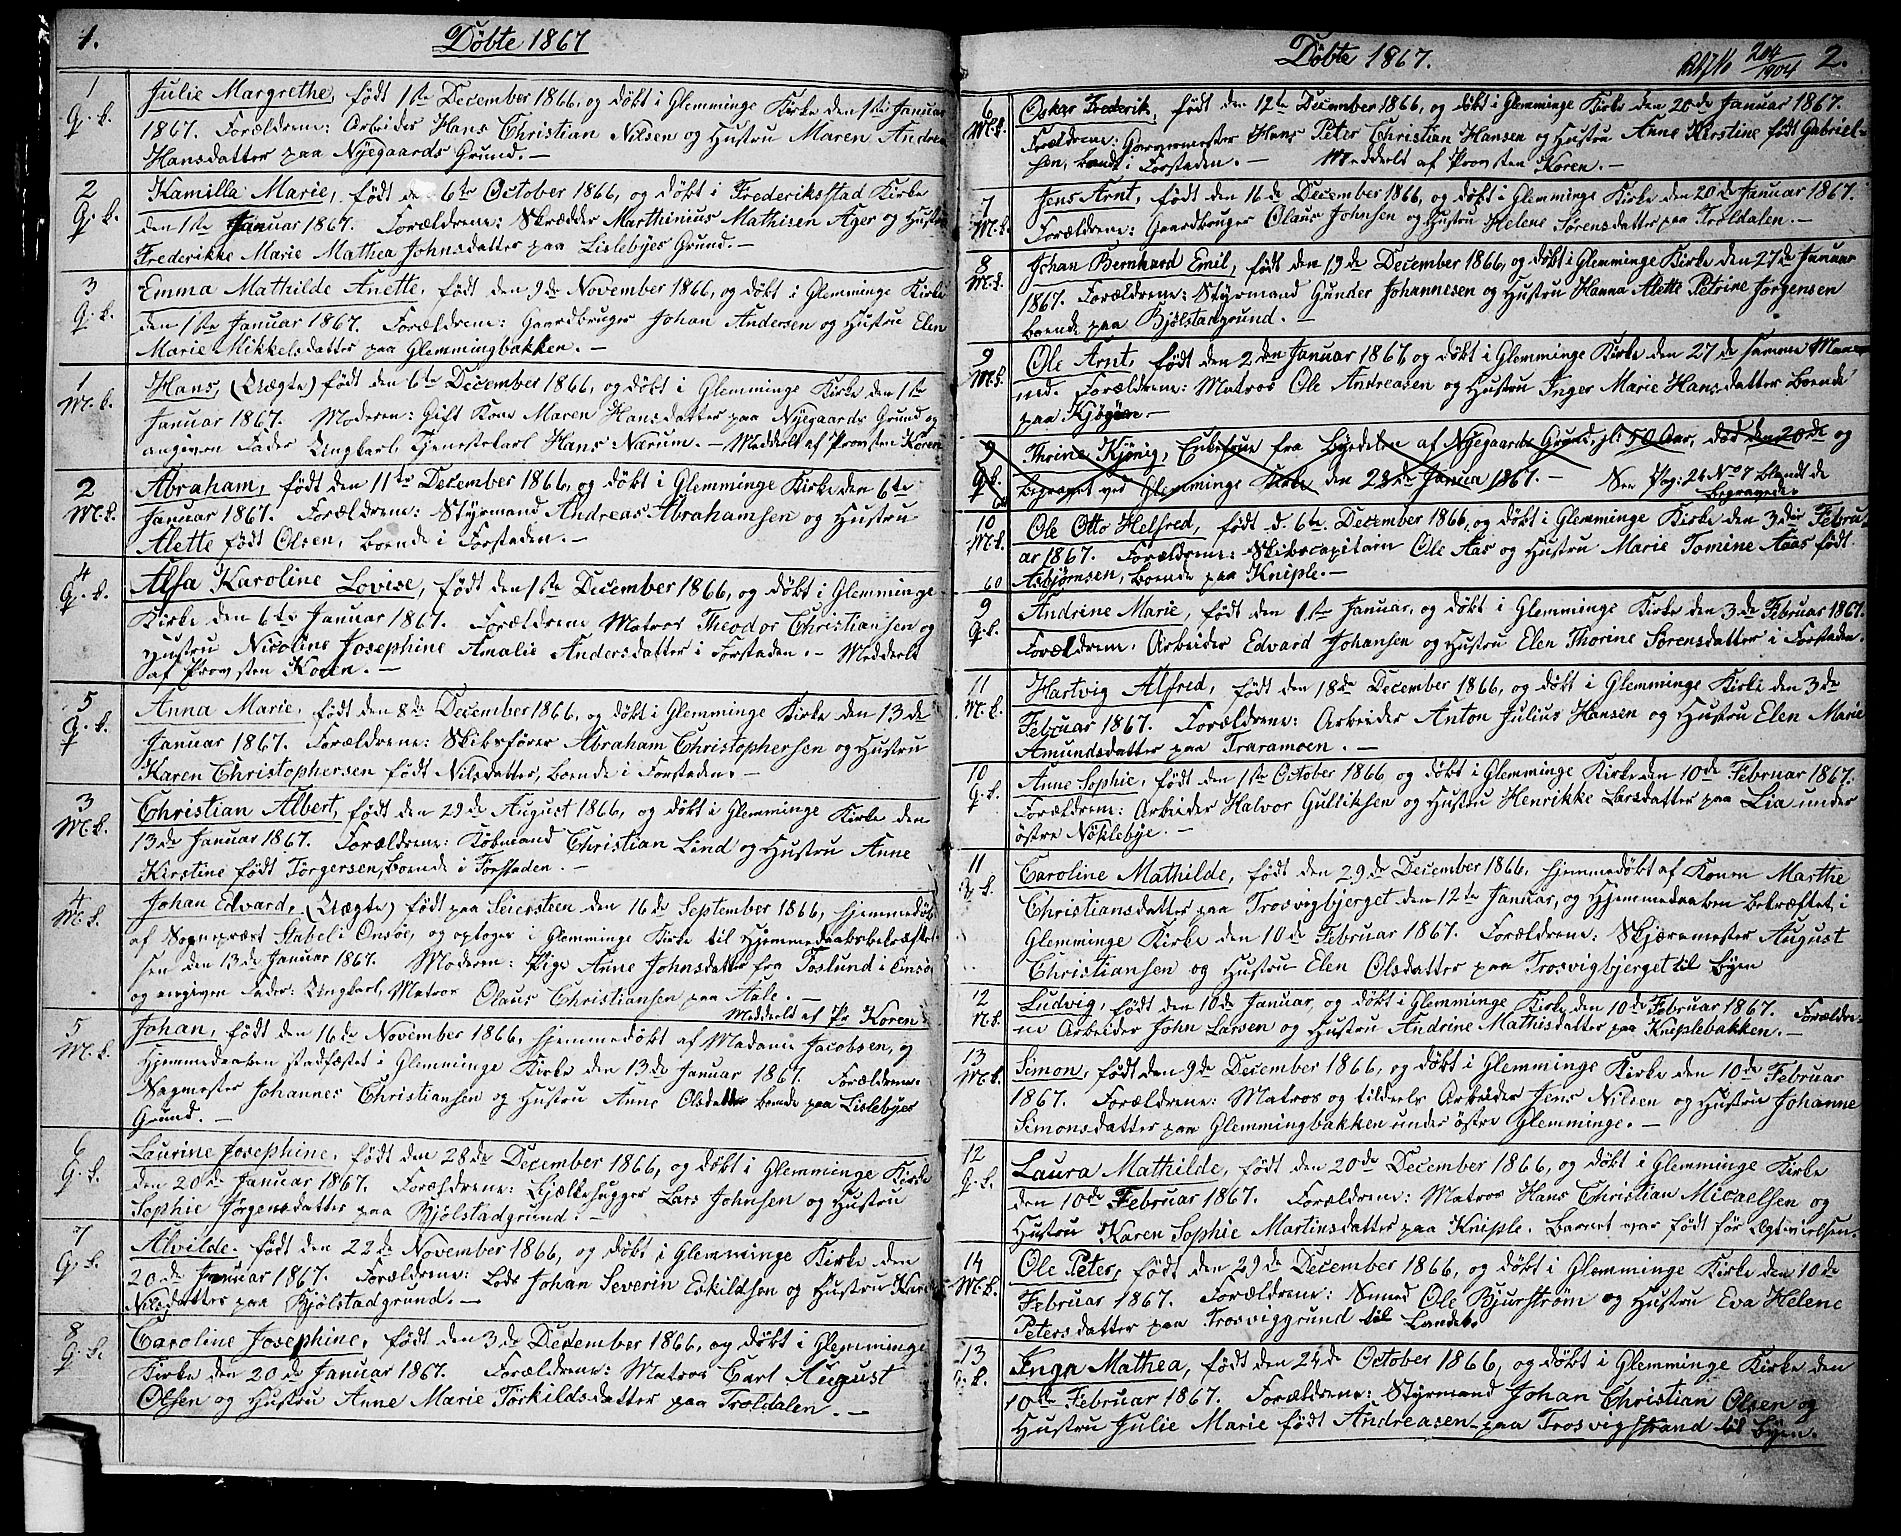 1.
Döbte 1867
1
Q. k.
Julie Margrethe, födt 1ste December 1866, og döbt i Glemminge Kirke den 1ste Januar
1867. Forældrene: Arbeider Hans Christian Nilsen og Hustru Maren Andrea
Hansdatter paa Nyegaards Grund. —
2
Q. k.
Kamilla Marie, födt den 6te October 1866, og döbt i Frederiksstad Kirke
den 1ste Januar 1867. Forældrene: Skrædder Marthinius Mathisen Ager og Hustru
Frederikke Marie Mathea Johnsdatter paa Lislebyes Grund. —
3
Q. k.
Emma Mathilde Anette, födt den 9de November 1866, og döbt i Glemminge Kirke
den 1ste Januar 1867. Forældrene: Gaardbruger Johan Andersen og Hustru Elen
Marie Mikkelsdatter paa Glemmingbakken. —
1
M. k.
Hans, (Uægte) födt den 6te December 1866, og döbt i Glemminge Kirke den 1ste
Januar 1867. Moderen: Gift Kone Maren Hansdatter paa Nyegaards Grund og
angiven Fader Ungkarl Tjenestekarl Hans Narum. — Meddelt af Provsten Koren
2
M. k.
Abraham, födt den 11te December 1866, og döbt i Glemminge Kirke den 6te
Januar 1867. Forældrene: Styrmand Andreas Abrahamsen og Hustru
Alette födt Olsen, boende i Forstaden. —
4
Q. k.
Alfa Karoline Lovise, födt den 1ste December 1866, og döbt i Glemminge
Kirke den 6te Januar 1867. Forældrene Matros Theodor Christiansen og
Hustru Nicoline Josephine Amalie Andersdatter i Forstaden. — Meddelt
af Provsten Koren. —
5
Q. k.
Anna Marie, födt den 8de December 1866, og döbt i Glemminge Kirke den 13de
Januar 1867. Forældrene: Skibsförer Abraham Christophersen og Hustru
Karen Christophersen födt Nilsdatter, boende i Forstaden. —
3
M. k.
Christian Albert, födt den 29de August 1866, og döbt i Glemminge Kirke den
13de Januar 1867. Forældrene: Kobmand Christian Lind og Hustru Anne
Kirstine födt Törgersen, boende i Forstaden. —
4
M. k.
Johan Edvard, (Uægte) födt paa Seiersteen den 16de September 1866, hjemmedöbt
af Sognepræst Stabel i Onsöe, og optoges i Glemminge Kirke til Hjemmedaabsbekræftel-
sen den 13de Januar 1867. Moderen: Pige Anne Johnsdatter fra Foslund i Onsöe
og angiven Fader: Ungkarl, Matros Olaus Christiansen paa Aale. —
Meddelt af Pr Koren
5
M. k.
Johan, födt den 16de November 1866, hjemmedöbt af Madame Jacobsen, og
Hjemmedaaben stadfæstet i Glemminge Kirke den 13de Januar 1867. Forældrene:
Sagmester Johannes Christiansen og Hustru Anne Olsdatter boende paa Lislebyes
Grund. —
6
Q. k.
Laurine Josephine, födt den 28de December 1866, og döbt i Glemminge Kirke
den 20de Januar 1867. Forældrene: Bjælkehugger Lars Johnsen og Hustru
Sophie Jörgensdatter paa Bjölstadgrund. —
7
Q. k.
Alvilde, födt den 22de November 1866, og döbt i Glemminge Kirke den
20de Januar 1867. Forældrene: Lods Johan Severin Eskildsen og Hustru Karen
Nilsdatter paa Bjölstadgrund. —
8
Q. k.
Caroline Josephine, födt den 3de December 1866, og döbt i Glemminge
Kirke den 20de Januar 1867. Forældrene: Matros Carl August
Olsen og Hustru Anne Marie Törkildsdatter paa Troldalen. —
Döbte 1867.
204/1904
2.
6
M. k.
Oskar Frederik, födt den 12te December 1866, og döbt i Glemminge Kirke den 20de Januar 1867.
Forældrene: Garvermester Hans Peter Christian Hansen og Hustru Anne Kirstine födt Gabriel-
sen, boende i Forstaden. — Meddelt af Provsten Koren. —
7
M. k.
Jens Arnt, födt den 16de December 1866, og döbt i Glemminge Kirke den 20de Januar 1867.
Forældrene: Gaardbruger Olaus Johnsen og Hustru Helene Sörensdatter paa Troldalen. —
8
M. k.
Johan Bernhard Emil, födt den 19de December 1866, og döbt i Glemminge Kirke den 27de Januar
1867. Forældrene: Styrmand Gunder Johannesen og Hustru Hanna Alette Petrine Jörgensen
boende paa Bjölstadgrund. —
9
M. k.
Ole Arnt, födt den 2den Januar 1867 og döbt i Glemminge Kirke den 27de samme Maa-
ned. Forældrene: Matros Ole Andreasen og Hustru Inger Marie Hansdatter boende
paa Kjögöen —
9
Q. k.
Thrine Kjönig, Enkefrue fra Byedelen af Nyegaards Grund, gl: 50 Aar, död den 20de og
begravet ved Glemminge Kirke den 28de Januar 1867. — See Pag: 26 No 7 blandt de
begravede
10
M. k.
Ole Otto Helfred, födt d. 6te December 1866, og döbt i Glemminge Kirke den 3die Febru-
ar 1867. Forældrene: Skibscapitain Ole Aas og Hustru Marie Tomine Aas födt
Asbjørnsen, boende paa Kniple. —
9
Q. k.
Andrine Marie, födt den 1ste Januar, og döbt i Glemminge Kirke den 3de Februar 1867.
Forældrene: Arbeider Edvard Johansen og Hustru Elen Thorine Sörensdatter i Forstaden.
11
M. k.
Hartvig Alfred, födt den 18de December 1866, og döbt i Glemminge Kirke den 3de
Februar 1867. Forældrene: Arbeider Anton Julius Hansen og Hustru Elen Marie
Amundsdatter paa Traramoen. —
10
Q. k.
Anne Sophie, födt den 1ste October 1866 og döbt i Glemminge Kirke den 10de Februar 1867.
Forældrene: Arbeider Halvor Gulliksen og Hustru Henrikke Larsdatter paa Lia under
östre Nöklebye. —
11
Q. k.
Caroline Mathilde, födt den 29de December 1866, hjemmedöbt af Konen Marthe
Christiansdatter paa Trosvigbjerget den 12te Januar, og Hjemmedaaben bekræftet i
Glemminge Kirke den 10de Februar 1867. Forældrene: Skjæremester August
Christiansen og Hustru Elen Olsdatter paa Trosvigbjerget til Byen
12
M. k.
Ludvig, födt den 10de Januar, og döbt i Glemminge Kirke den 10de Februar 1867. Forældre-
ne Arbeider John Larsen og Hustru Andrine Mathisdatter paa Kniplebakken. —
13
M. k.
Simon, födt den 9de December 1866, og döbt i Glemminge Kirke den 10de Februar
1867. Forældrene: Matros og tildels Arbeider Jens Nilsen og Hustru Johanne
Simonsdatter paa Glemmingbakken under östre Glemminge. —
12
Q. k.
Laura Mathilde, födt den 20de December 1866, og döbt i Glemminge Kirke
den 10de Februar 1867. Forældrene: Matros Hans Christian Micaelsen og
Hustru Karen Sophie Martinsdatter paa Kniple. Barnet var födt för Ægtevielsen.
14
M. k.
Ole Peter, födt den 29de December 1866, og döbt i Glemminge Kirke den 10de
Februar 1867. Forældrene: Smed Ole Bjurström og Hustru Eva Helene
Petersdatter paa Trosviggrund til Landet.
13
Q. k.
Inga Mathea, födt den 24de October 1866, og döbt i Glemminge Kirke den
10de Februar 1867. Forældrene: Styrmand Johan Christian Olsen og
Hustru Julie Marie födt Andreasen paa Trosvigstrand til Byen.